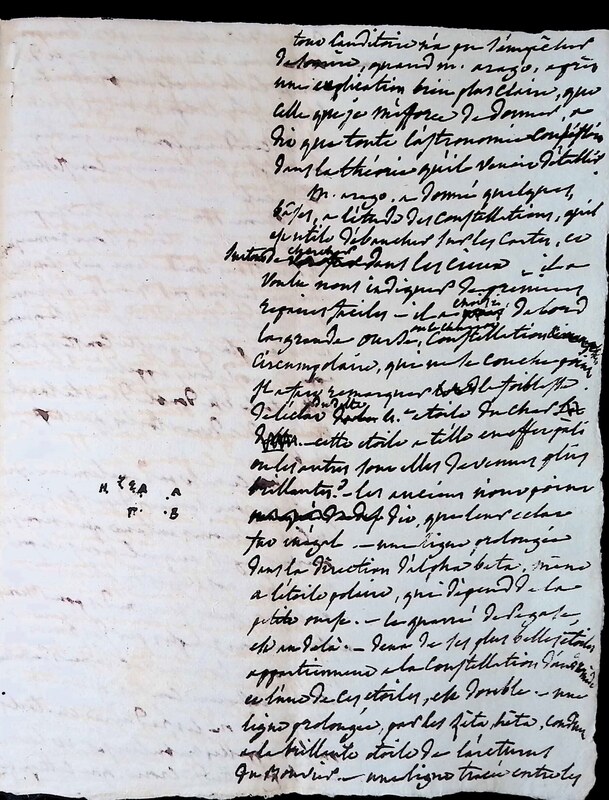 tout l'auditoire n'a pu s'empêcher
de sourire, quand m. arago, après
une explication bien plus claire, que
celle que je m'efforce de donner, a
dit que toute l'astronomie consistait
dans la théorie qu'il venait d'établir
m. arago, a donné quelques,
bases, a l'étude des constellations, qu'il
est utile d'ébaucher sur les cartes, et
surtout de chercher dans les cieux - il a
voulu nous indiquer de premiers
repaires faciles - il a choisi d'abord
la grande ourse, constellation
circumpolaire, qui ne se couche point
il a fait remarquer la foiblesse
de l'éclat du delta etoile du char
cette etoile a t'elle en effet pâli
ou les autres sont elles devenues plus
brillantes? - les anciens n'ont point
dit, que leur eclat
fut inégal - une ligne prolongée
dans la direction d'alpha, beta, mène
a l'étoile polaire, qui dépend de la
petite ourse. - le quarré de Pegase,
est au delà. - deux de ses plus belles étoiles
appartiennent a la constellation d'andromède
et l'une de ces etoiles, est double. - une
ligne prolongée, par les zêta, êta, conduit
a la brillante etoile de l'arcturus
du Bouvier. - une ligne tracée entre les
A
B